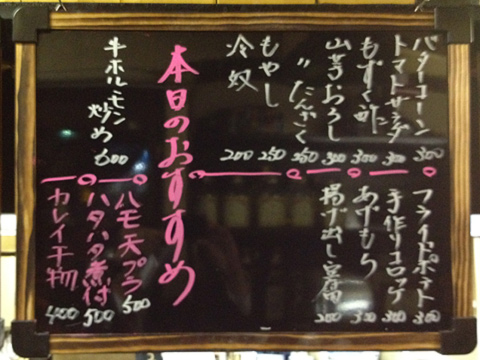 バターコーン 300
トマトサラダ 300
もずく酢 300
山芋おろし 300
〃たんざく 350
もやし 250
冷奴 200
フライドポテト 300
手作りコロッケ 300
あげもち 300
揚げ出し豆腐 200
本日のおすすめ
牛ホルモン
炒め 600
ハモ天プラ 500
ハタハタ煮付 500
カレイ干物 400